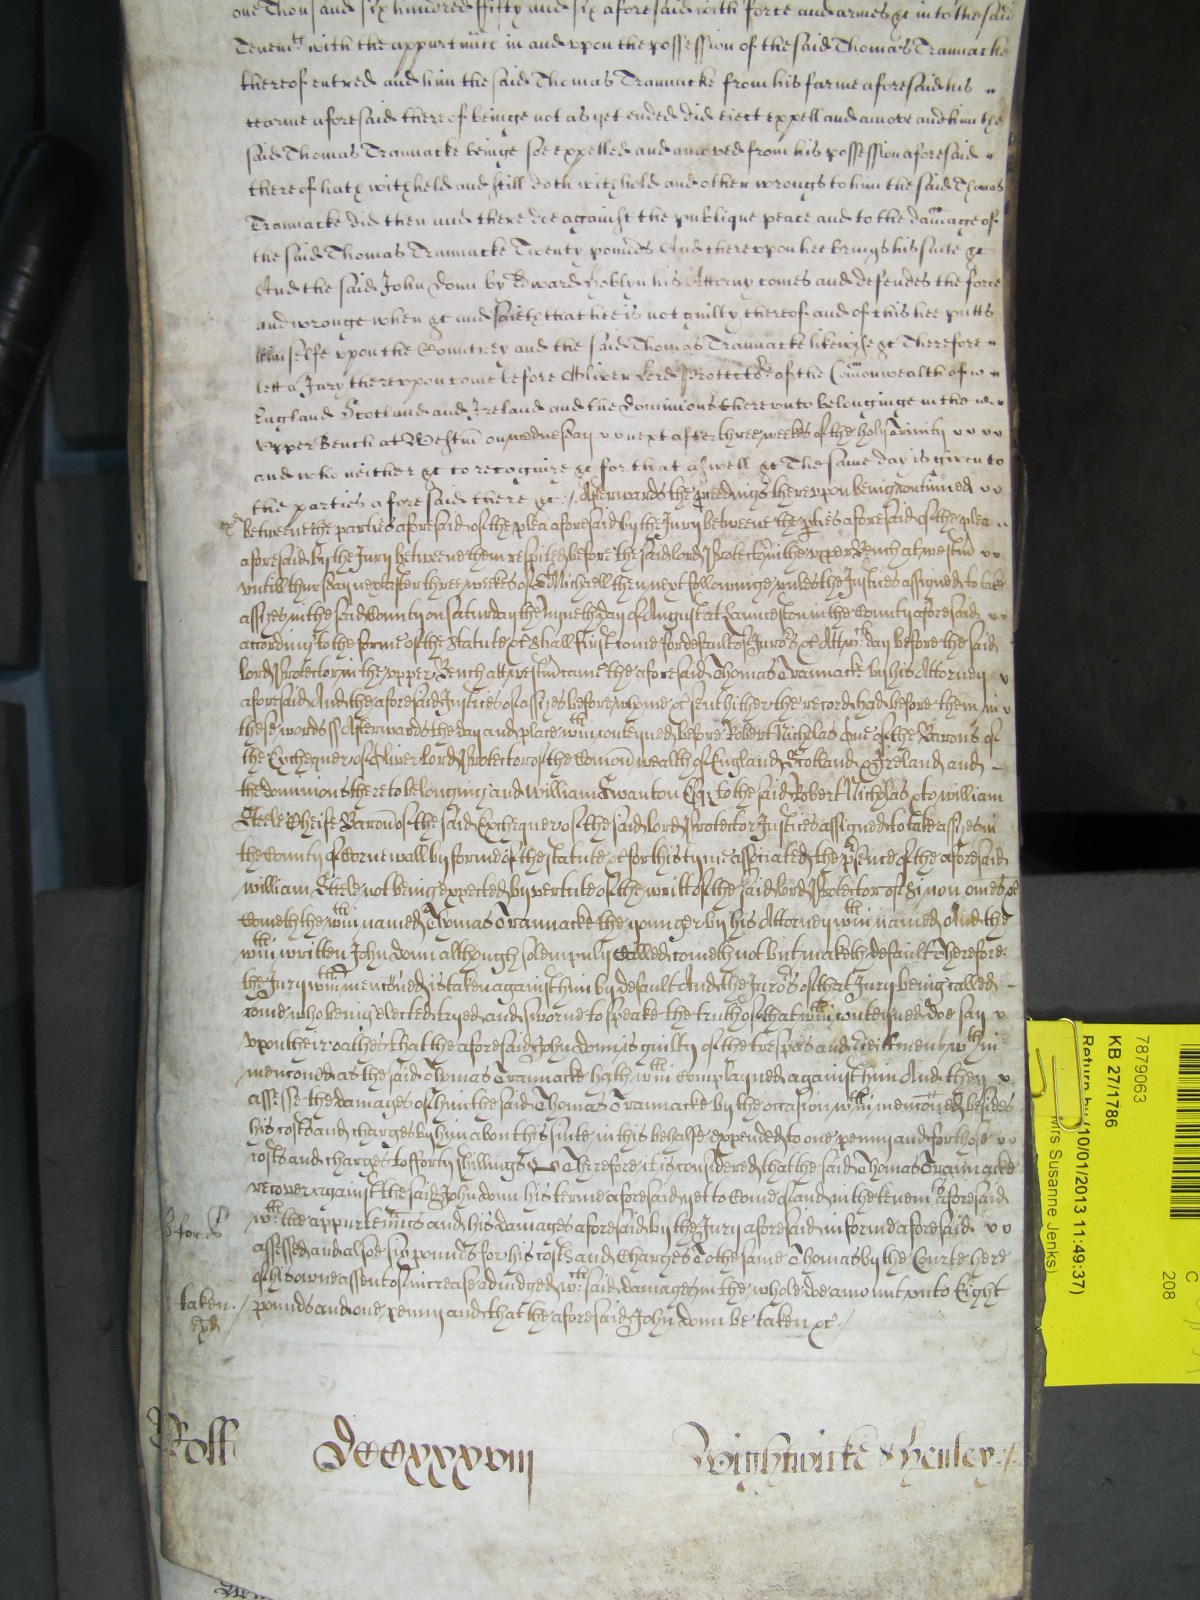 one Thousand six hundred ffifty and six aforesaid with force and armes &c into the said
Tenemts with the appurtnnc in and vpon the possession of the said Thomas Trannacke
thereof entred and him the said Thomas Trannacke from his farme aforesaid his
tearme aforesaid thereof beinge not as yet ended did eiect expell and amove and him the
said Thomas Trannacke beinge soe expelled and amoved from his possession aforesaid
thereof hath withheld and still doth withhold and other wrongs to him the said Thomas
Trannacke did then and there doe against the publique peace and to the damage of
the said Thomas Trannacke Twenty pounds And therevpon hee brings his suite &c
And the said John Donn by Edward Hoblyn his Attorny comes and defendes the force
and wronge when &c and saieth that hee is not guilty thereof and of this hee putts
himselfe vpon the Countrey and the said Thomas Trannacke likewise &c Therefore
lett a Jury therevpon come before Oliver Lord Protector of the Comonwealth of
England Scotland and Ireland and the Dominions therevnto belonginge in the
vpper Bench at Westm on wednesday next after three weekes of the holy Trinity
and who neither &c to recognize &c for that aswell &c The same day is given to
the parties aforesaid there &c / Afterwards the pceedings therevpon being continued
Betweene the parties aforesaid of the plea aforesaid by the Jury betweene the pties aforesaid of the plea
aforesaid by the Jury betweene them respited before the said Lord Protector in the vpper Bench at westm
vntill thursday next after three weekes of St Michaell then next followinge vnles the Justices assigned to take
assizes in the said County on Saturday the nyneth day of August at Launceston in the County aforesaid
according to the forme of the Statute &c shall first come for default of Jurors &c Att wch day before the said
Lord Protector in the vpper Bench att westm came the aforesaid Thomas Trannacke by his Attorney
aforesaid And the aforesaid Justices of assizes before whome &c sent hither the record had before them in
these words ss Afterwards the day and place within conteyned before Robert Nicholas One of the Barons of
the Exchequer of Oliver Lord Protector of the Comon wealth of England Scotland & Ireland and
the dominions thereto belonging and William Swanton Esqr to the said Robert Nicholas & to william
Steele Cheife Baron of the said Exchequer of the said Lord Protector Justices assigned to take assizes in
the County of Cornewall by forme of the statute &c for this tyme associated the psence of the aforesaid
william Steele not being expected by vertute of the writt of the said Lord Protector of Si non omes &c
Cometh the within named Thomas Trannacke the younger by his Attorney within named And the
within written John Donn although solempnly Called cometh not but maketh default Therefore
the Jury within menconed is taken against him by default And the Jurors of that Jury being called
come who being elected tryed and sworne to speake the truth of that within conteyned doe say
vpon their oathes that the aforesaid John Donn is guilty of the trespas and eiectment within
menconed as the said Thomas Trannacke hath within Complayned against him And they
assesse the damages of him the said Thomas Trannacke by the occasion within menconed besides
his costs and charges by him about his suite in this behalfe expended to one penny and for those
costs and charges to fforty shillings Therefore it is considered that the said Thomas Trannacke
recover against the said John Donn his terme aforesaid yet to Come of and in the tenemts aforesaid
wth the appurtenncs and his damages aforesaid by the Jury aforesaid in forme aforesaid
assessed and alsoe six pounds for his costs and Charges To the same Thomas by the Courte here
of his owne assent of increase adiudged wch said damages in the whole doe amount vnto Eight
taken / pounds and one penny and that the aforesaid John Donn be taken &c /
Roll DCCXXXVIII Wightwicke & Henley
7879063
KB 27/1786
Return by (10/01/2013 11:49:37)
Mrs Susanne Jenks)
208
C